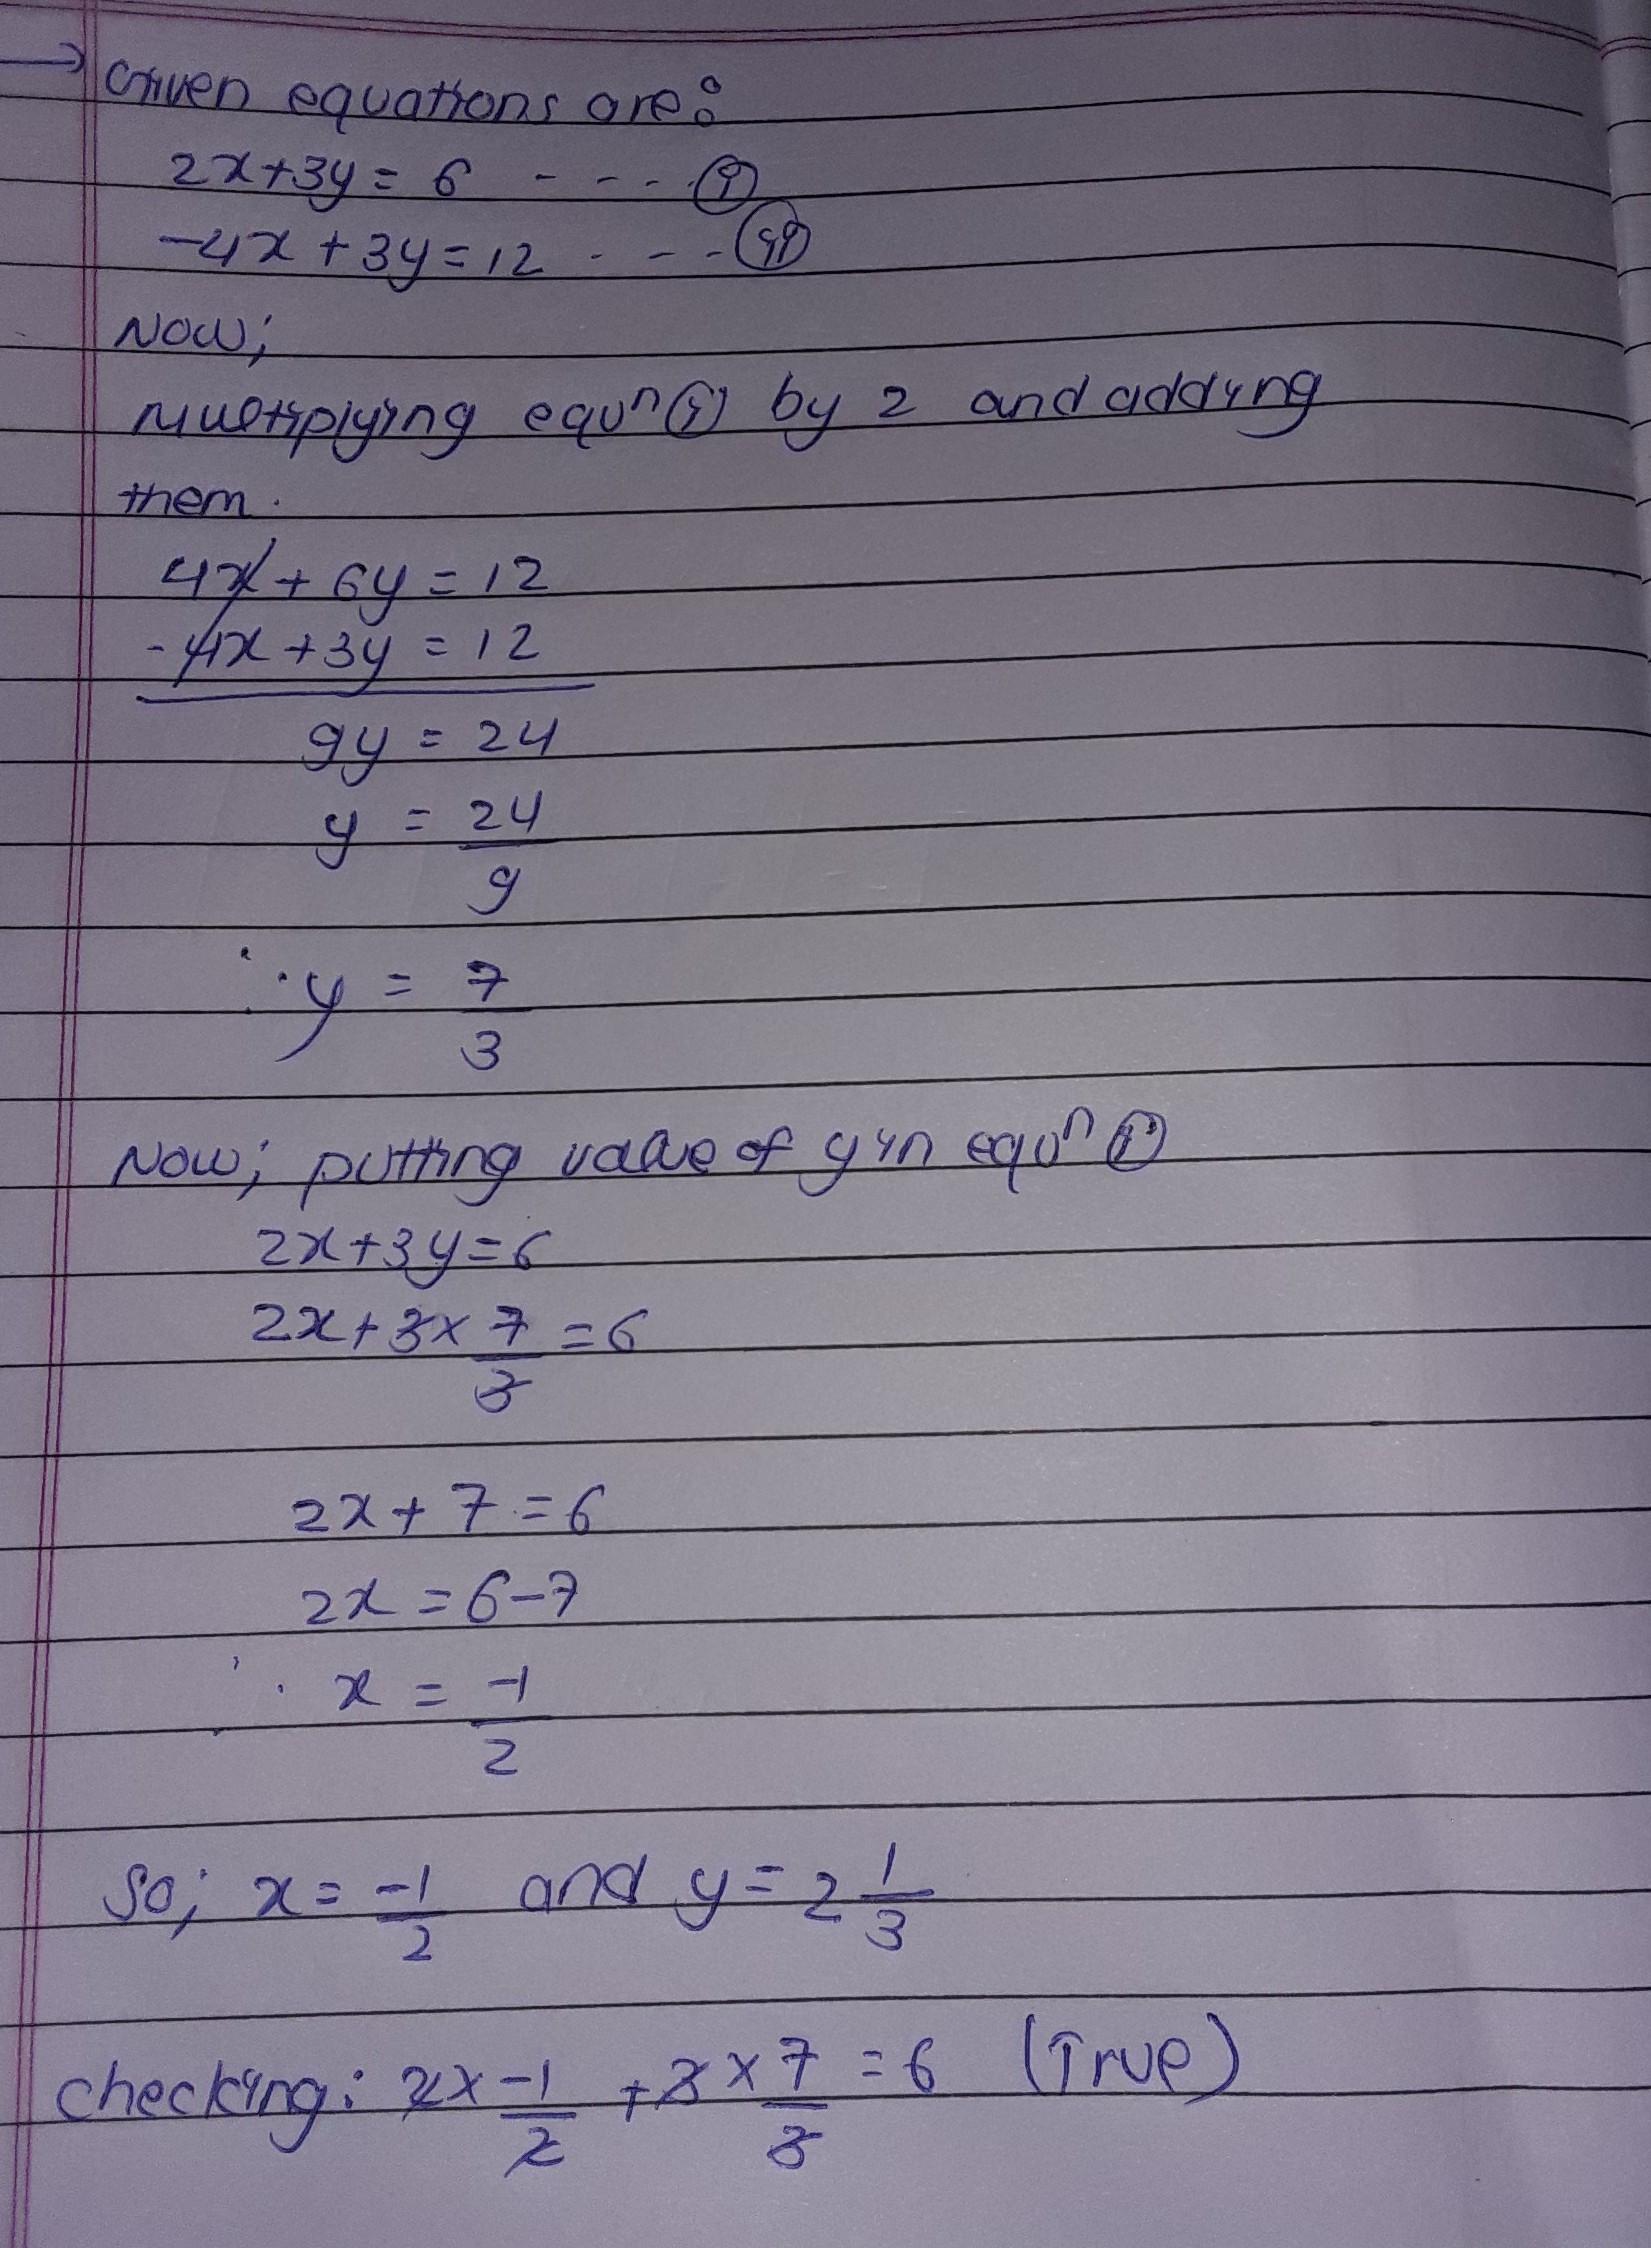 → Given equations are:
2x+3y=6 - - - - (i)
-4x+3y=12 - - - - (ii)
Now;
Multiplying equⁿ (i) by 2 and adding
them.
4x+6y=12
-4x+3y=12
9y=24
y=24/9
∴y=7/3
Now; putting value of y in equⁿ (i)
2x+3y=6
2x+3×7/3=6
2x+7=6
2x=6-7
∴ x=-1/2
So; x=-1/2 and y=2 1/3
checking: 2×-1/2+3×7/3=6 (True)